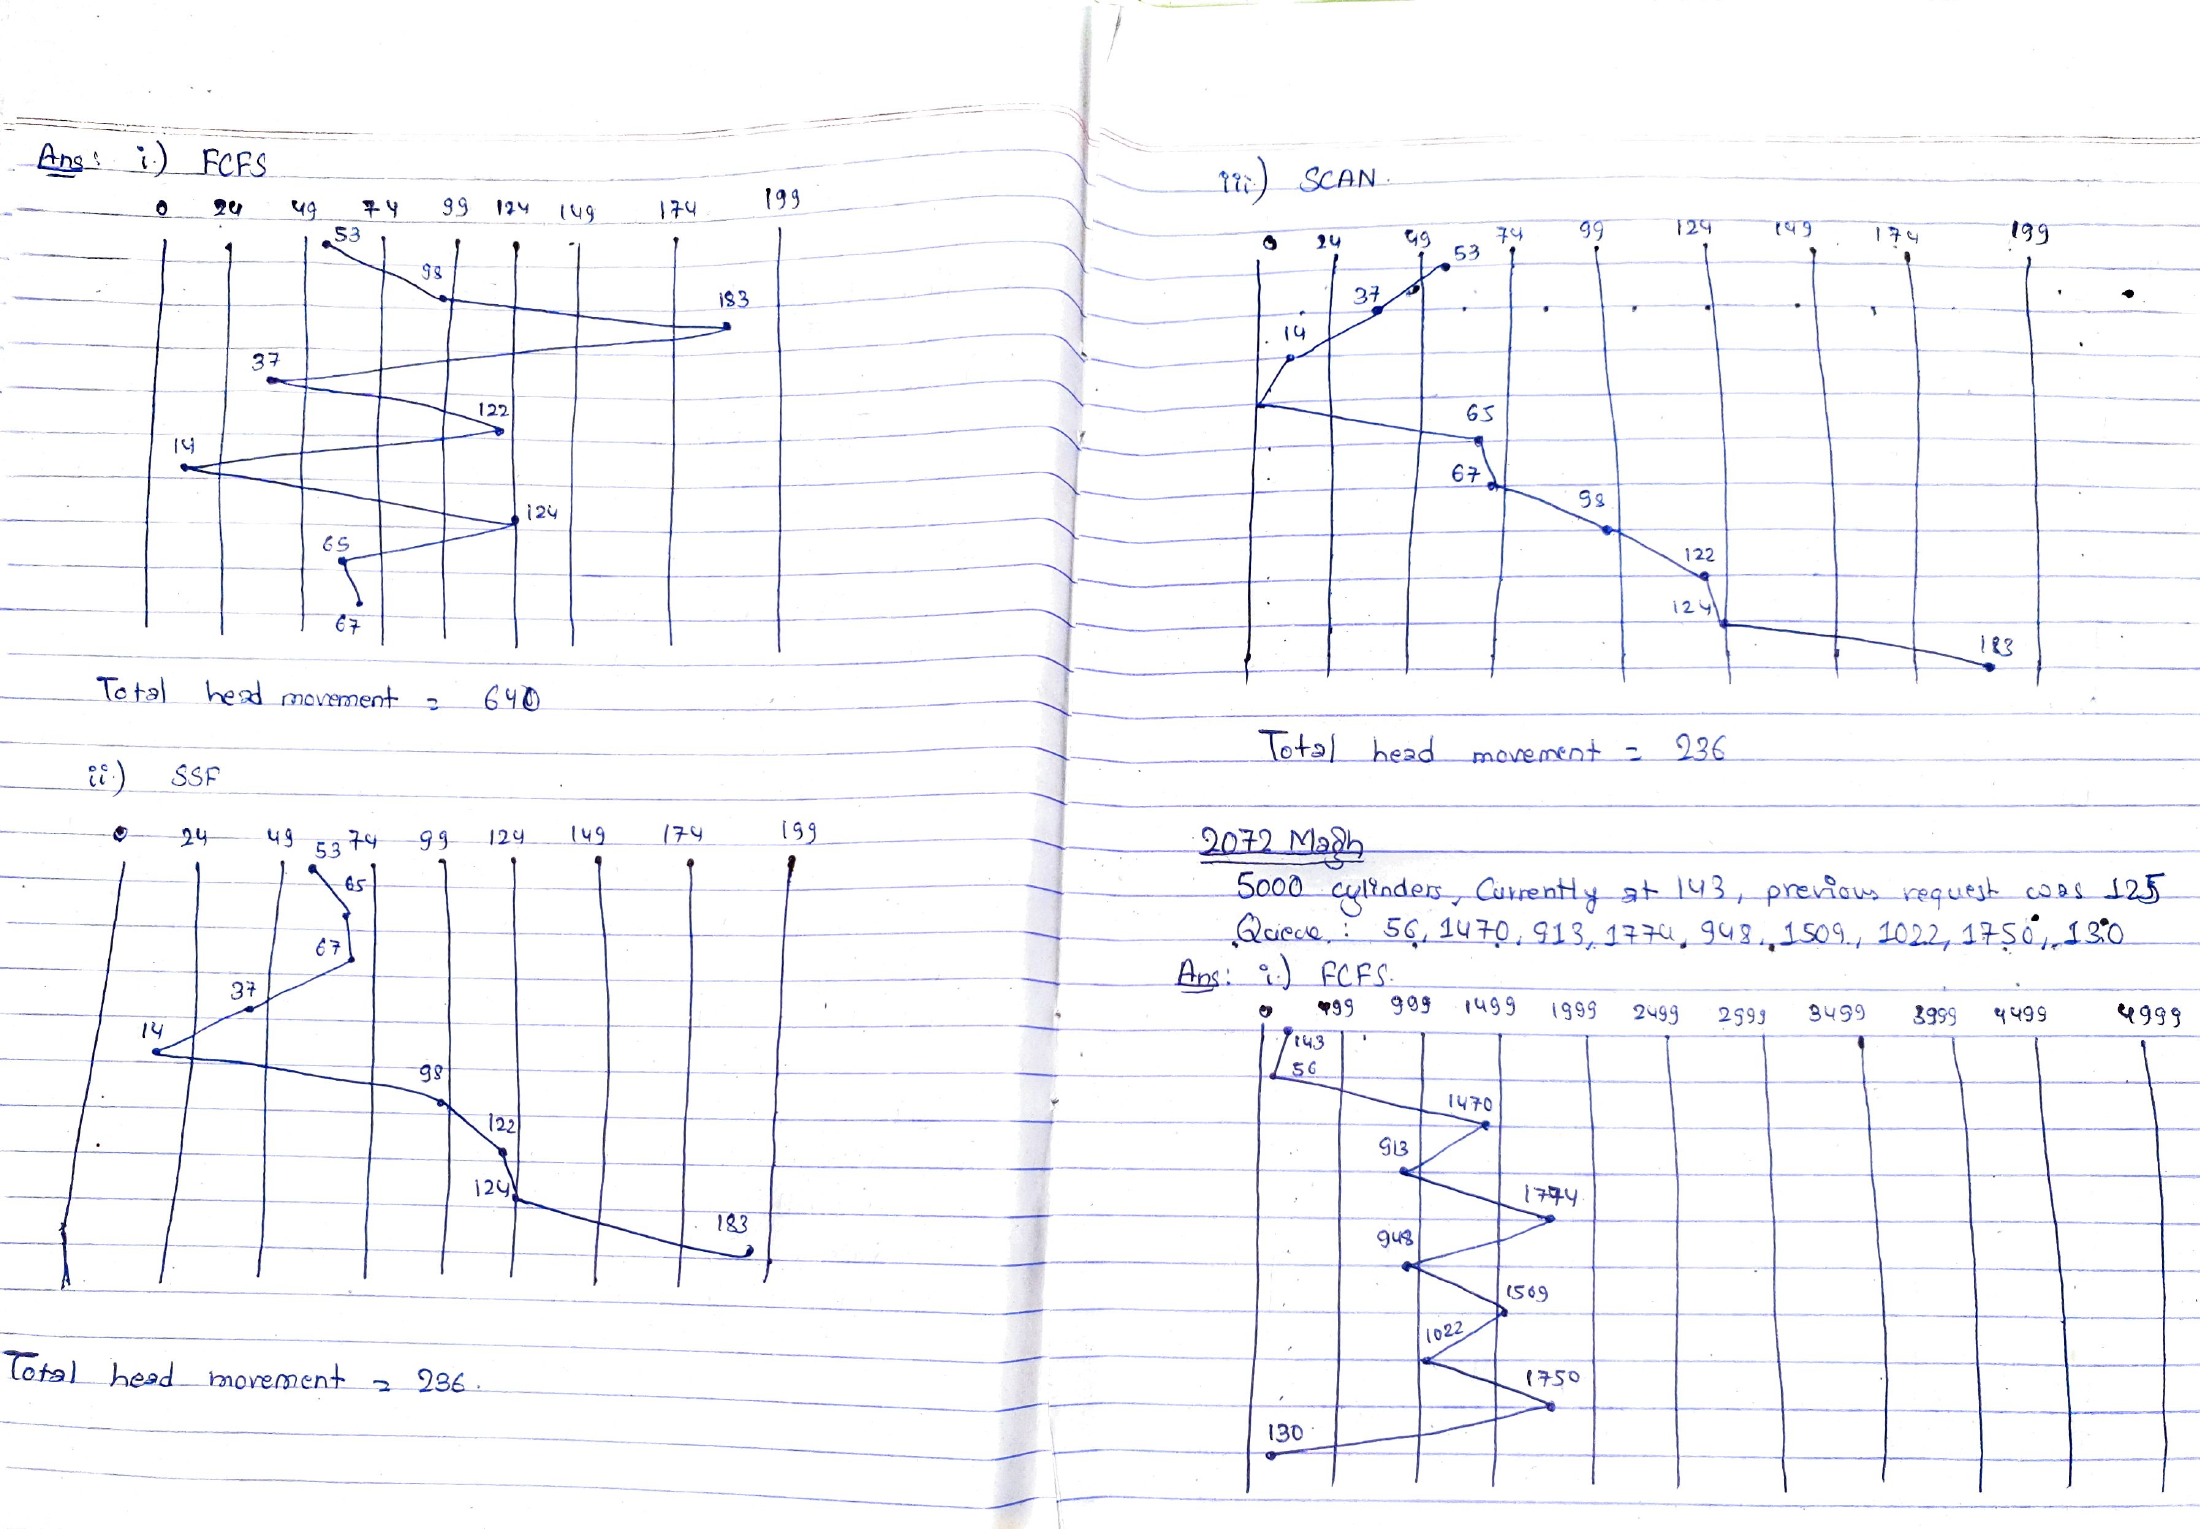 Ans: i.) FCFS
0 24 49 74 99 124 149 174 199
53
98
183
37
122
14
124
65
67
Total head movement = 640
ii.) SSF
0 24 49 74 99 124 149 174 199
53
65
67
37
14
98
122
124
183
Total head movement = 236.
iii) SCAN.
0 24 49 74 99 124 149 174 199
53
37
14
65
67
98
122
124
183
Total head movement = 236
2072 Magh
5000 cylinders, Currently at 143, previous request was 125
Queue : 56, 1470, 913, 1774, 948, 1509, 1022, 1750, 130
Ans: i.) FCFS.
0 499 999 1499 1999 2499 2999 3499 3999 4499 4999
143
56
1470
913
1774
948
1509
1022
1750
130